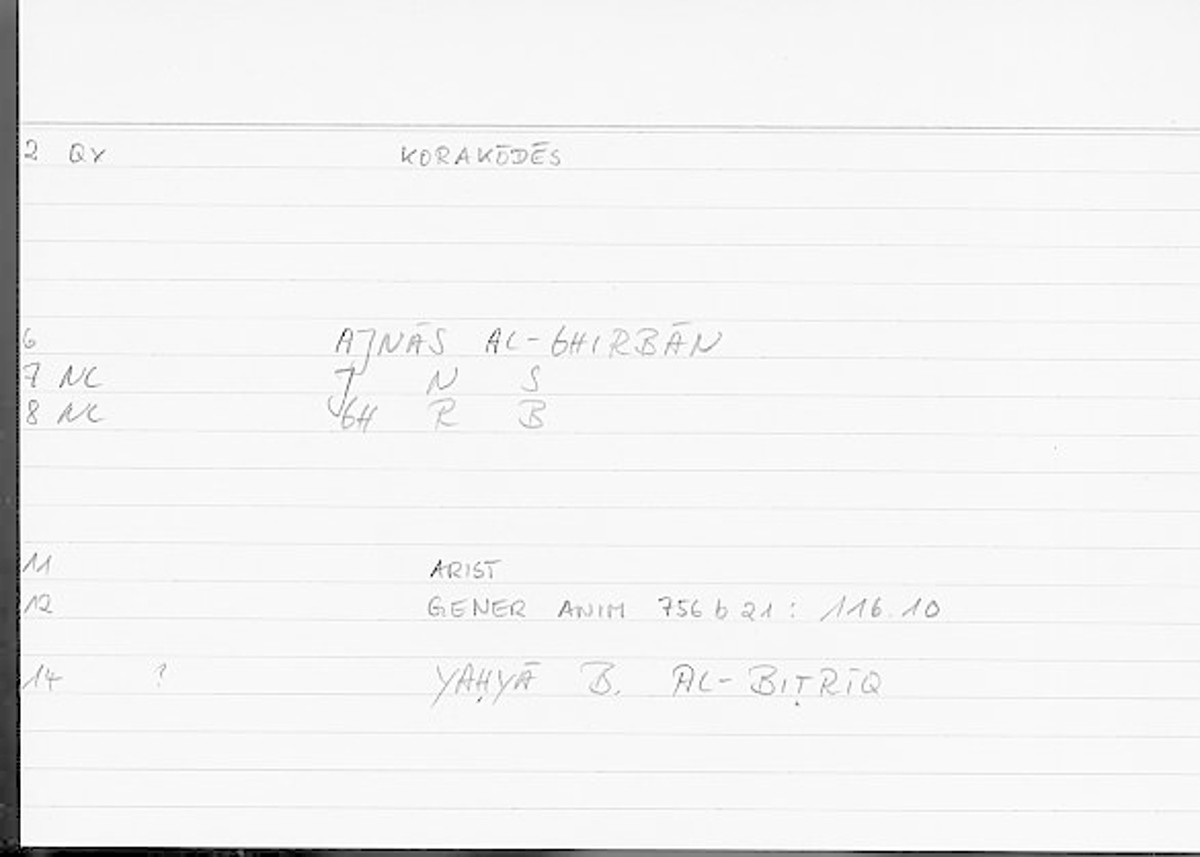 2 QY KORAKŌDĒS
6 AJNĀS AL-GHIRBĀN
7 NC J N S
8 NC GH R B
11 ARIST
12 GENER ANIM 756 b 21 : 116.10
14 ? YAḤYĀ B. AL-BIṬRĪQ